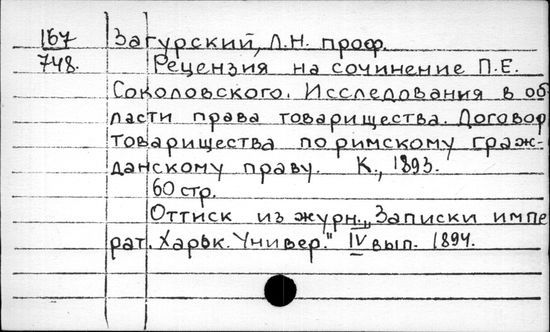 167 Загурский, Л.Н. проф.
748. Рецензия на сочинение П.Е.
Соколовского. Исследования в об
ласти права товарищества. Договор
товарищества по римскому граж-
данскому праву. К., 1893.
60 стр.
Оттиск из журн. „Записки импе
рат. Харьк. Универ." IV вып. 1894.